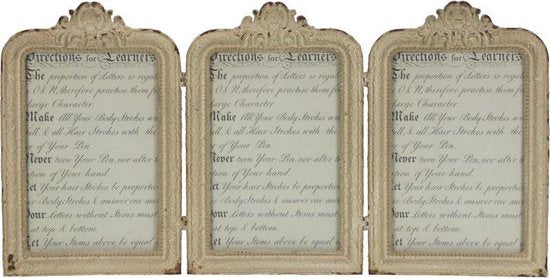 Directions for Learners
The proportion of Letters is regula
O & N, therefore practise them fir
large Character.
Make All Your Body Strokes wi
ull, & all Hair Strokes with the
y of Your Pen.
Never turn Your Pen, nor alter t
ation of Your hand
Let Your hair Strokes be proportio
r Body Strokes & answer one ano
Your Letters without Stems must
at top & bottom.
Let Your Stems above be equal
Directions for Learners
The proportion of Letters is regula
O & N, therefore practise them fir
large Character.
Make All Your Body Strokes wi
ull, & all Hair Strokes with the
y of Your Pen.
Never turn Your Pen, nor alter t
ation of Your hand
Let Your hair Strokes be proportio
r Body Strokes & answer one ano
Your Letters without Stems must
at top & bottom.
Let Your Stems above be equal
Directions for Learners
The proportion of Letters is regula
O & N, therefore practise them fir
large Character.
Make All Your Body Strokes wi
ull, & all Hair Strokes with the
y of Your Pen.
Never turn Your Pen, nor alter t
ation of Your hand
Let Your hair Strokes be proportio
r Body Strokes & answer one ano
Your Letters without Stems must
at top & bottom.
Let Your Stems above be equal